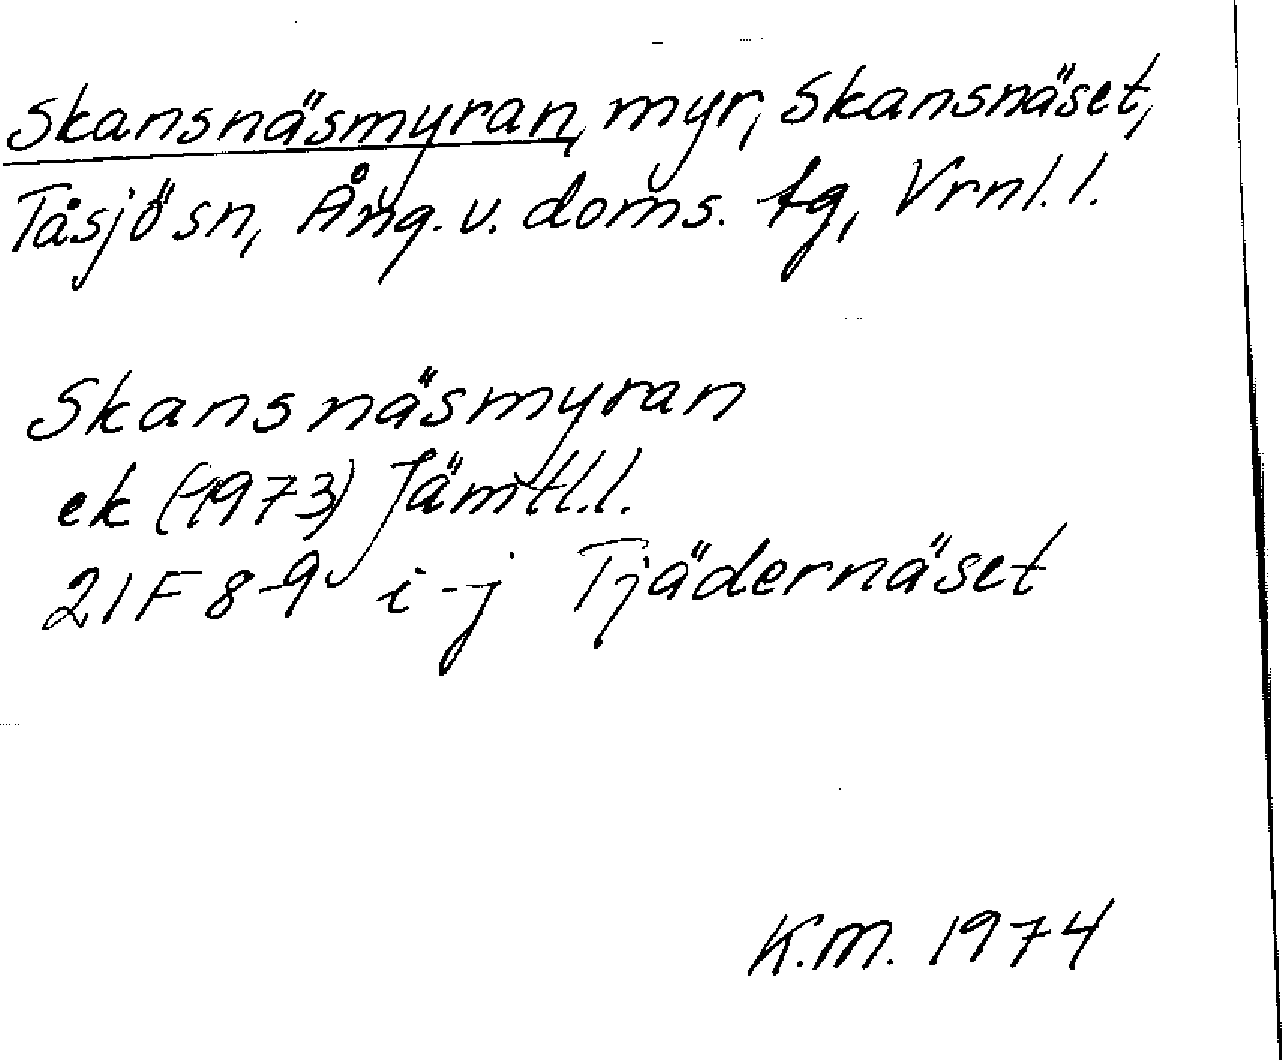 Skansnäsmyran, myr, Skansnäset,
Tåsjö sn, Ång. v. doms. tg, Vrnl. l.
Skansnäsmyran
ek (1973) Jämtl. l.
21F 8-9 i-j Tjädernäset
K.M. 1974